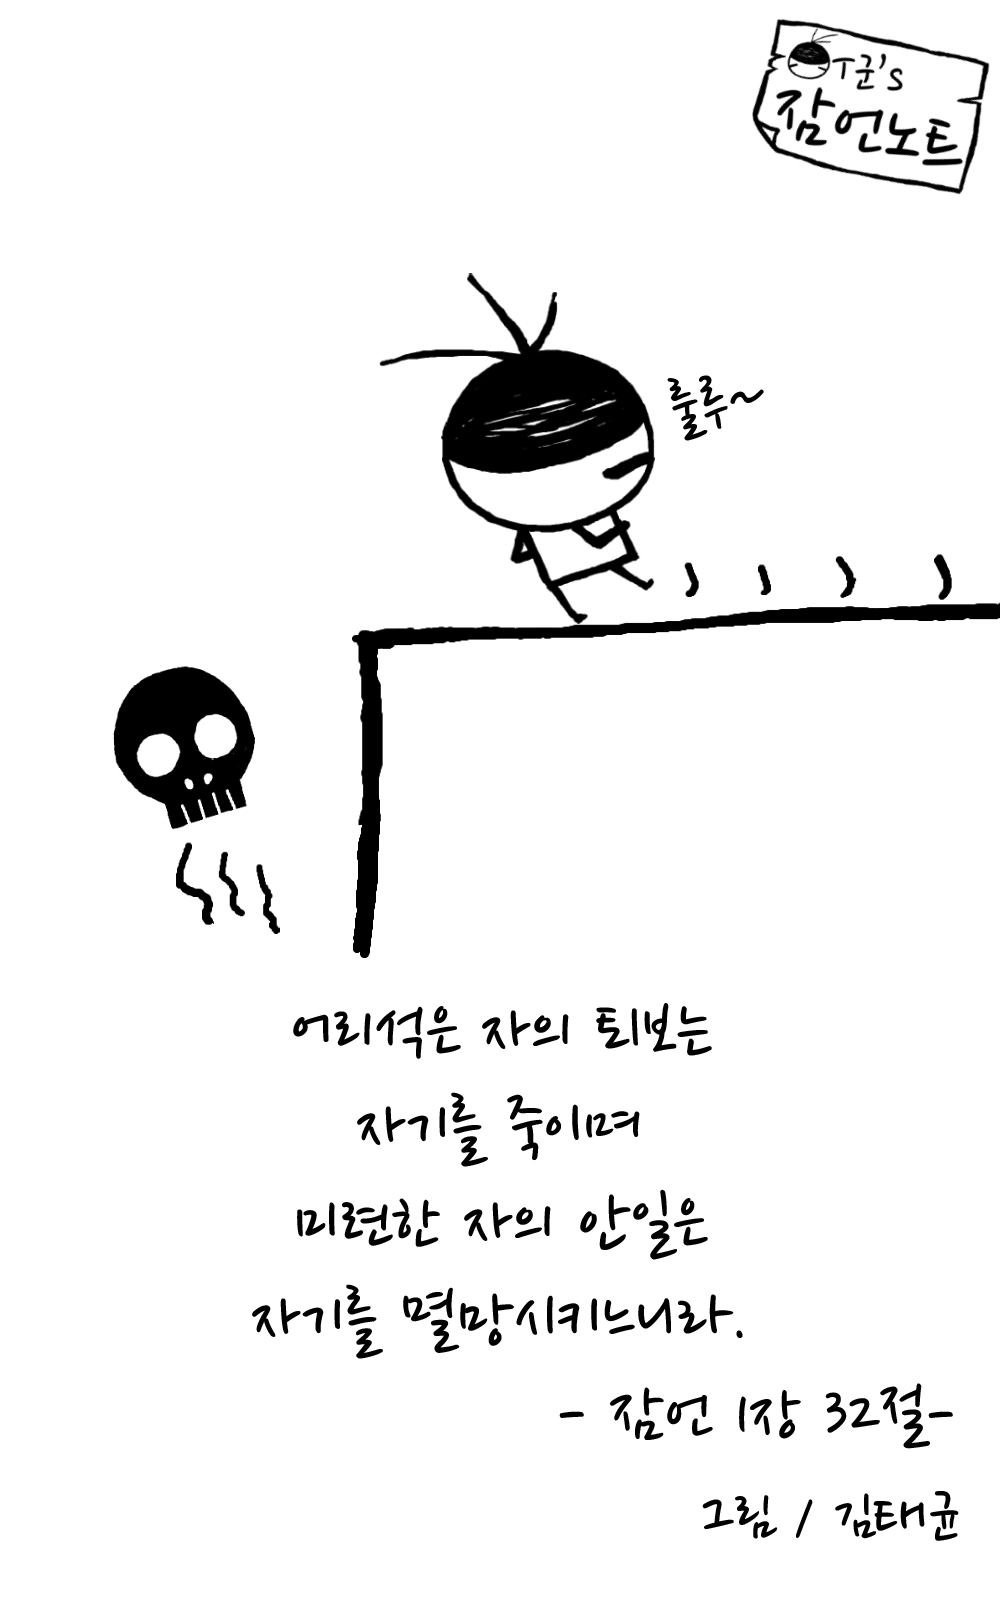 T군's
잠언노트
룰루~
어리석은 자의 퇴보는
자기를 죽이며
미련한 자의 안일은
자기를 멸망시키느니라.
- 잠언 1장 32절-
그림 / 김태균